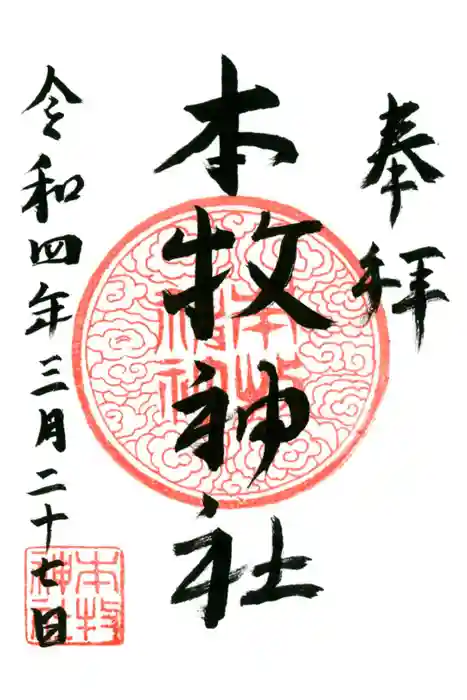 奉拝
本牧神社
令和四年三月二十七日
本牧
神社